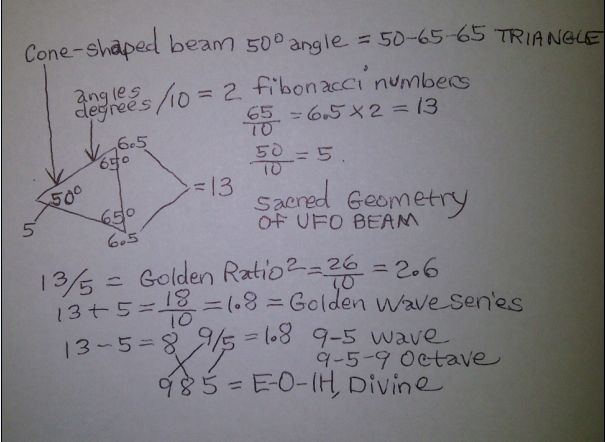 Cone-shaped beam 50° angle = 50-65-65 TRIANGLE
angles
degrees /10 = 2 fibonacci numbers
65/10 = 6.5 x 2 = 13
50/10 = 5.
6.5
65°
50°
= 13
65°
6.5
5
Sacred Geometry
OF UFO BEAM
13/5 = Golden Ratio² = 26/10 = 2.6
13 + 5 = 18/10 = 1.8 = Golden Wave series
13 - 5 = 8 9/5 = 1.8 9-5 wave
9-5-9 Octave
985 = E-O-IH, Divine